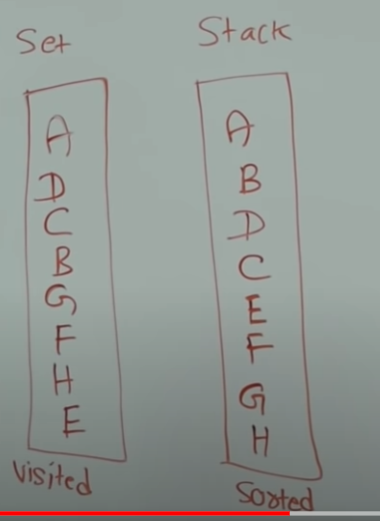 Set
A
D
C
B
G
F
H
E
Visited
Stack
A
B
D
C
E
F
G
H
Sorted